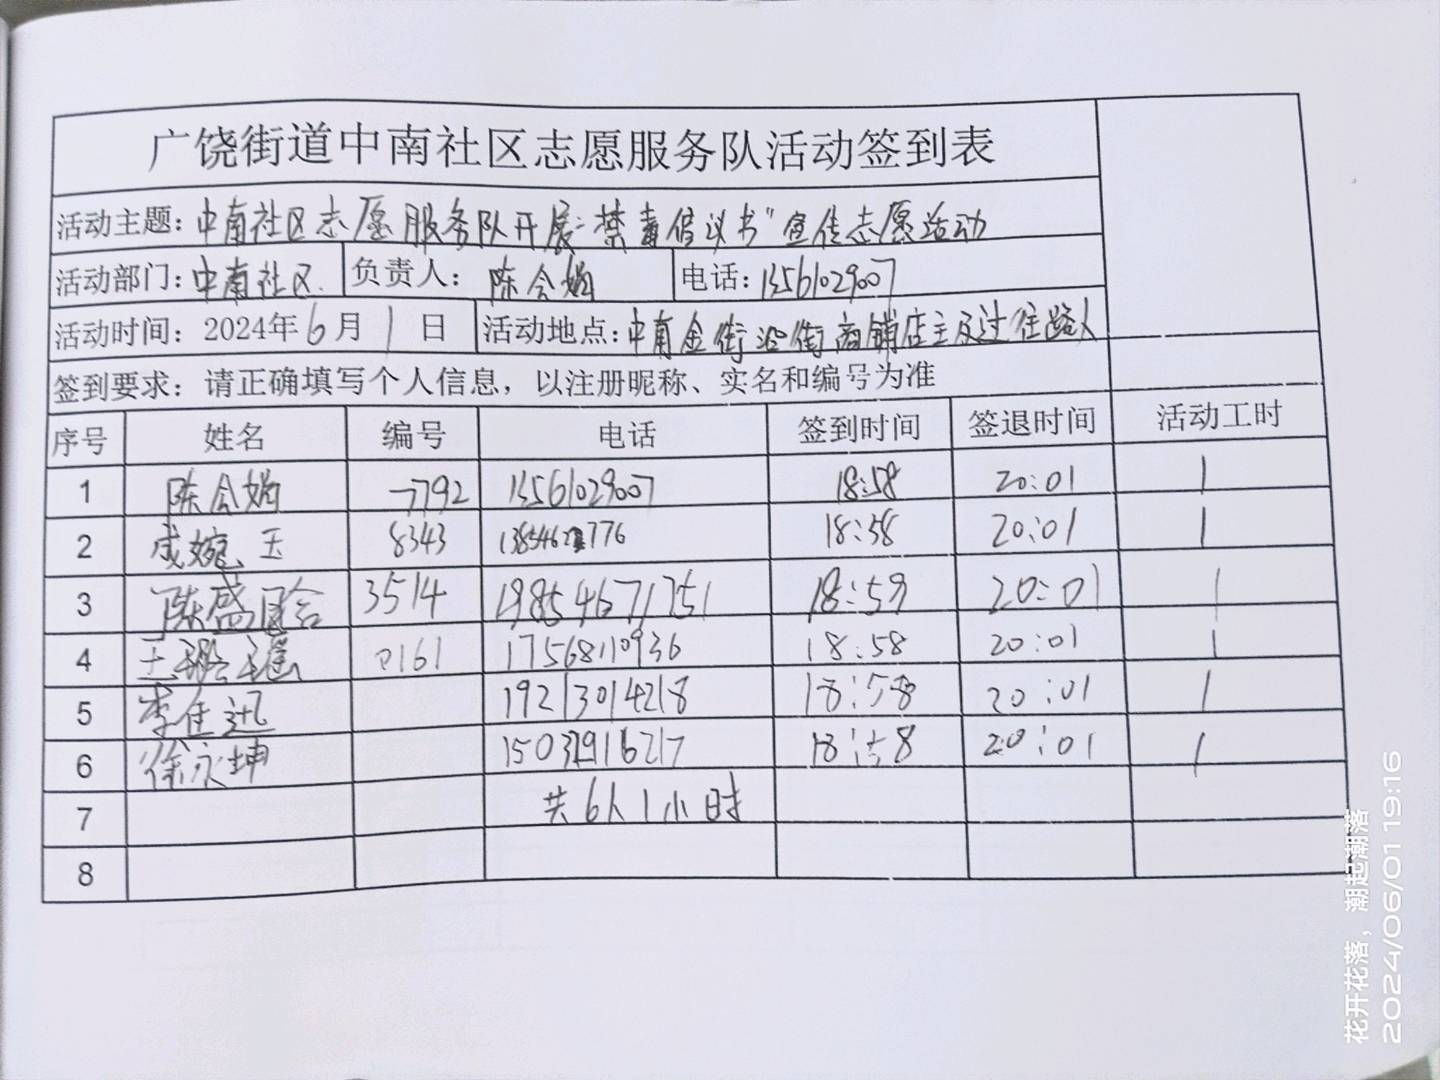 广饶街道中南社区志愿服务队活动签到表
活动主题: 中南社区志愿服务队开展“禁毒倡议书”宣传志愿活动
活动部门: 中南社区 负责人: 陈会娟 电话: 13561029007
活动时间: 2024年6月1日 活动地点: 中南金街沿街商铺店主及过往路人
签到要求: 请正确填写个人信息，以注册昵称、实名和编号为准
序号 姓名 编号 电话 签到时间 签退时间 活动工时
1 陈会娟 7792 13561029007 18:58 20:01 1
2 成婉玉 8343 18:58 20:01 1
3 陈盛 3514 19854671751 18:59 20:01 1
4 王 0161 17568110936 18:58 20:01 1
5 李佳迅 19213014218 18:58 20:01 1
6 徐永坤 18:58 20:01 1
7 共6人1小时
8
花开花落，潮起潮落
2024/06/01 19:16